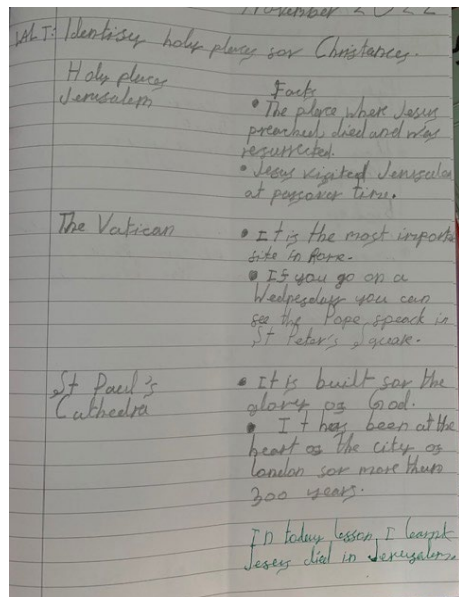 November 2022
WALT: Identisy holy places sor Christancy.
Holy places
Facts
Jerusalem
• The place where Jesus
preached, died and was
resurrected.
• Jesus visited Jerusalem
at passover time.
The Vatican
• It is the most importa
site in Rome.
• Is you go on a
Wednesday you can
see the Pope speack in
St Peter's Squar.
St Paul's
Cathedra
• It is built sor the
glory os God.
• It has been at the
heart os the city os
London sor more than
300 years.
In today lesson, I learnt
Jesus died in Jerusalem.